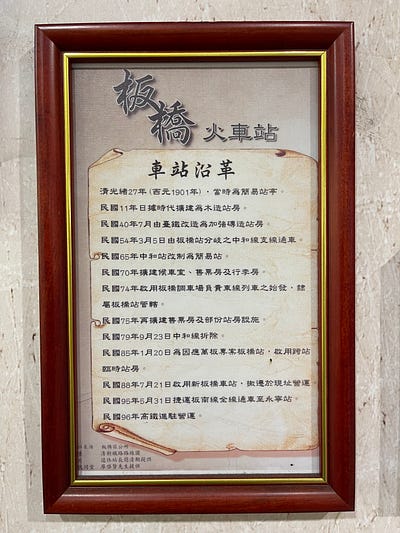 板橋火車站
車站沿革
清光緒27年(西元1901年)，當時為簡易站亭。
民國11年日據時代擴建為木造站房。
民國40年7月由臺鐵改造為加強磚造站房。
民國54年3月5日由板橋站分岐之中和線支線通車。
民國65年中和站改制為簡易站。
民國70年擴建候車室、售票房及行李房。
民國74年啟用板橋調車場負責東線列車之始發，隸
屬板橋站管轄。
民國75年再擴建售票房及部份站房設施。
民國79年9月23日中和線拆除。
民國85年1月20日為因應萬板專案板橋站，啟用跨站
臨時站房。
民國88年7月21日啟用新板橋車站，搬遷於現址營運
民國95年5月31日捷運板南線全線通車至永寧站。
民國96年高鐵進駐營運。
板橋區公所